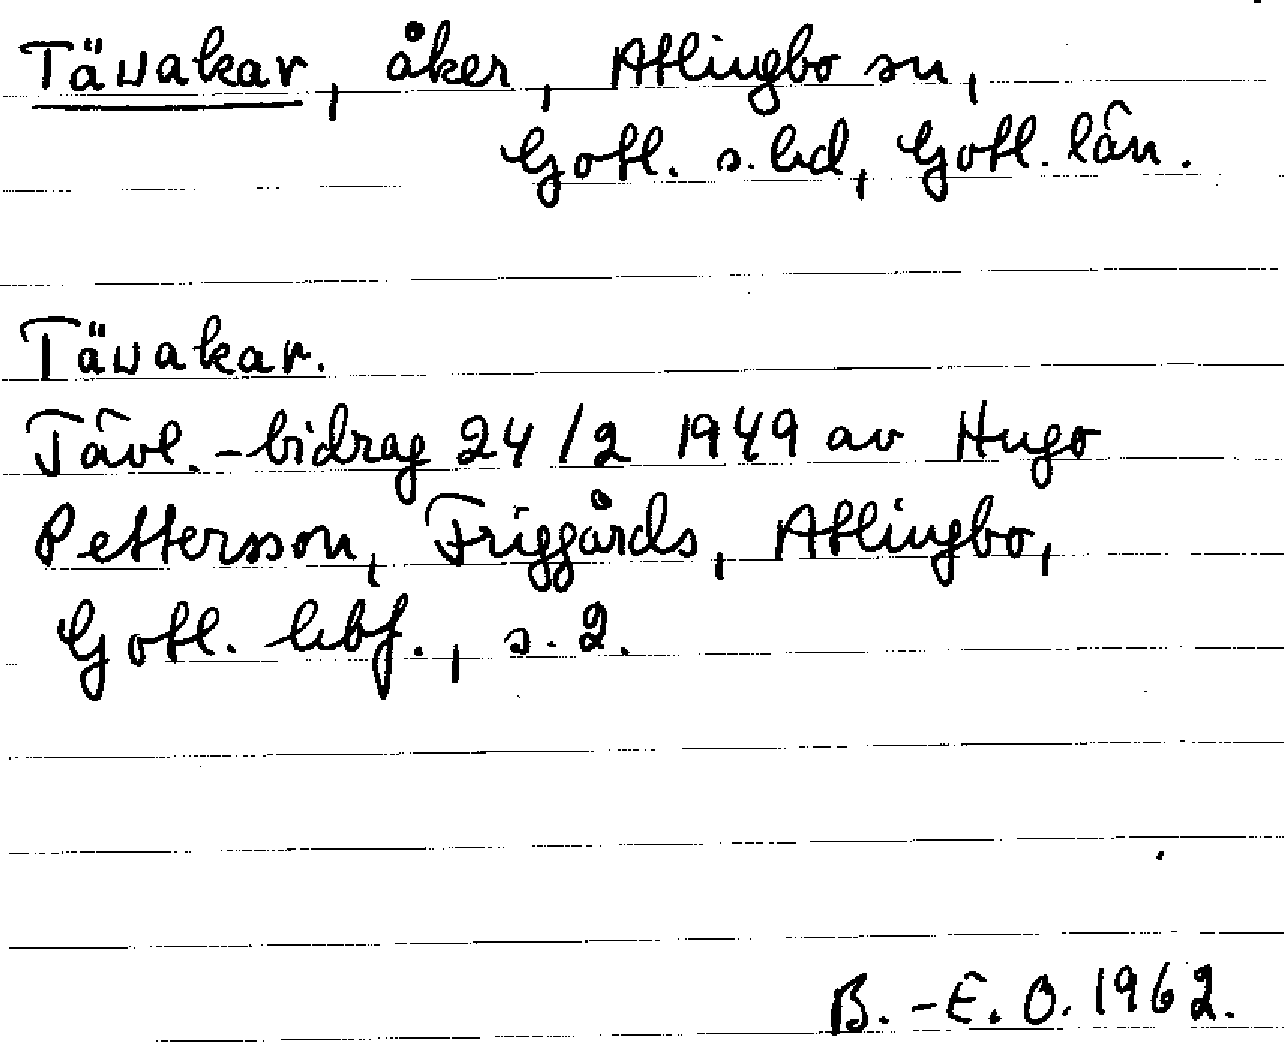 Tävakar, åker, Atlingbo sn,
Gotl. s. hd, Gotl. län.
Tävakar.
Tävl.-bidrag 24/2 1949 av Hugo
Pettersson, Friggårds, Atlingbo,
Gotl. hbf., s. 2.
B.-E. O. 1962.